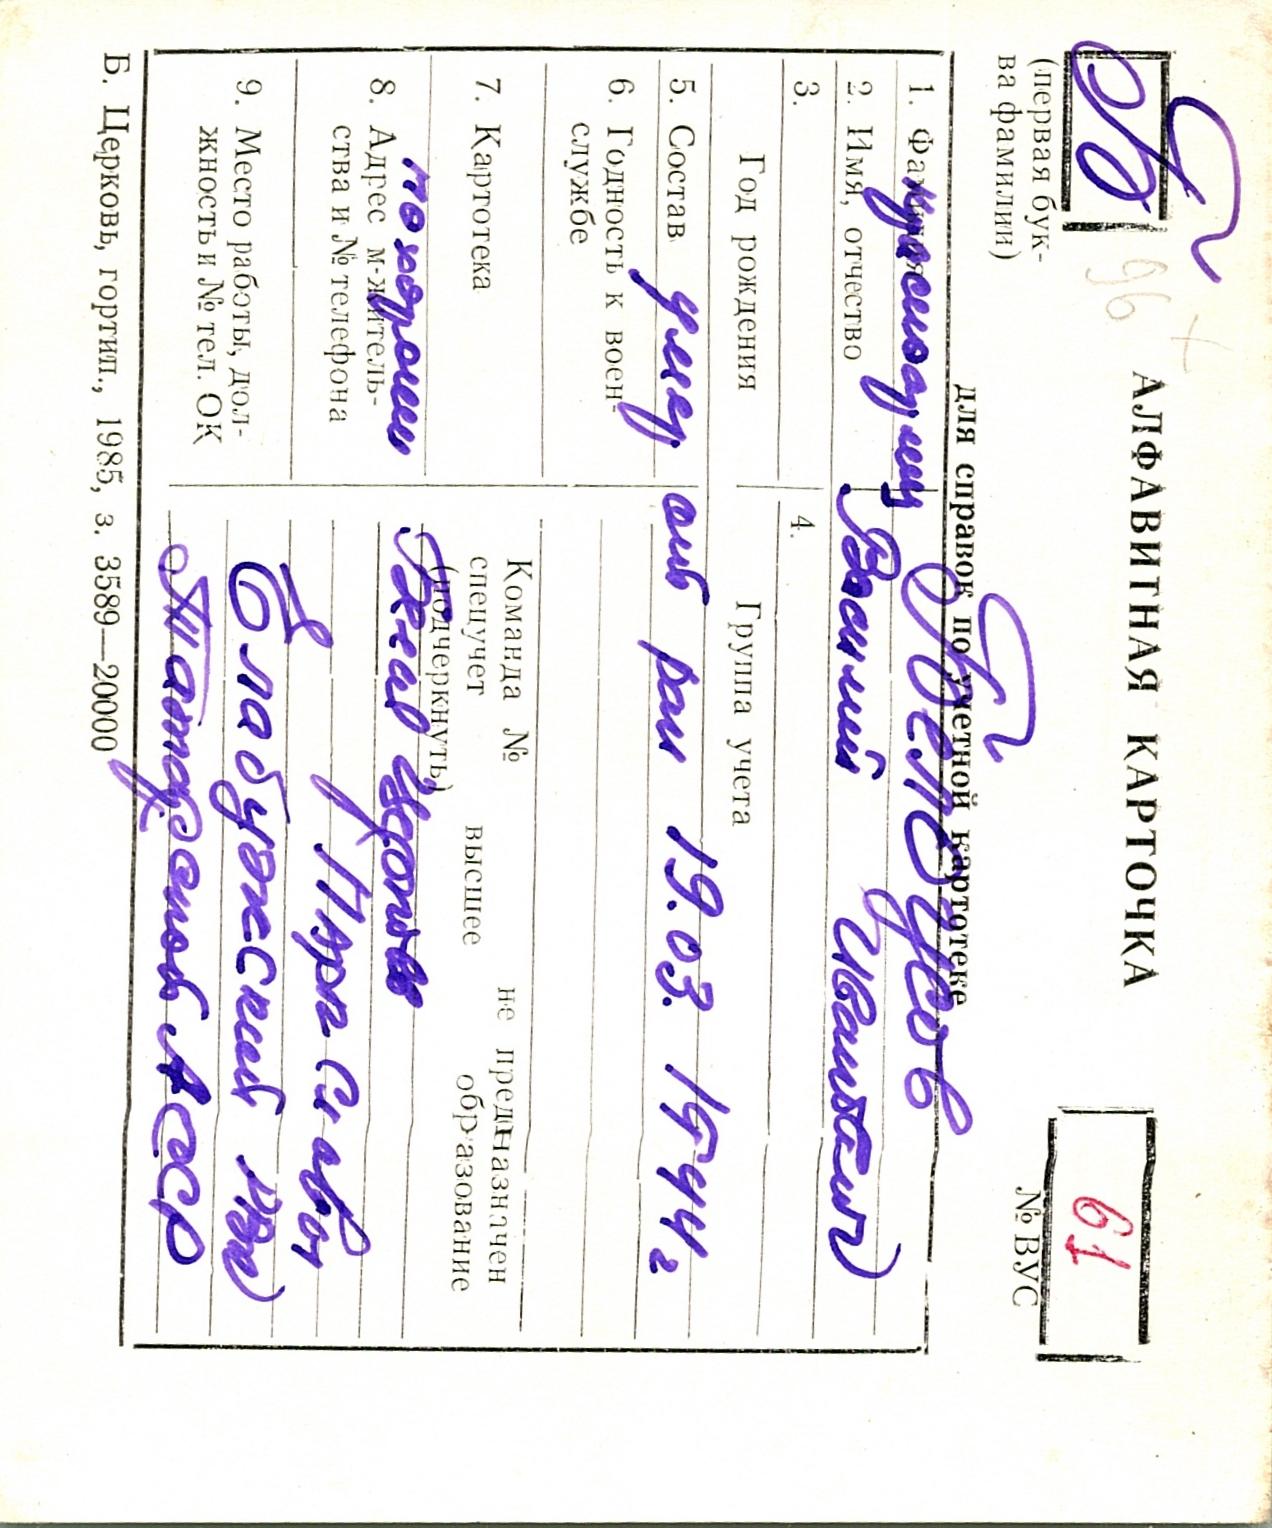 Б
96 +
(первая бук-
ва фамилии)
АЛФАВИТНАЯ КАРТОЧКА
для справок по учетной картотеке
61
№ ВУС
1. Фамилия
красноармеец
2. Имя, отчество
Василий Иванович
3.
4.
Год рождения
Группа учета
5. Состав
умер от ран 19.03. 1944 г
6. Годность к воен-
службе
7. Картотека
Команда №
не предназначен
спецучет высшее образование
(подчеркнуть)
похоронен
8. Адрес м-житель-
ства и № телефона
9. Место работы, дол-
жность и № тел. ОК
Елабужский
Татарской АССР
Б. Церковь, гортип., 1985, з. 3589—20000